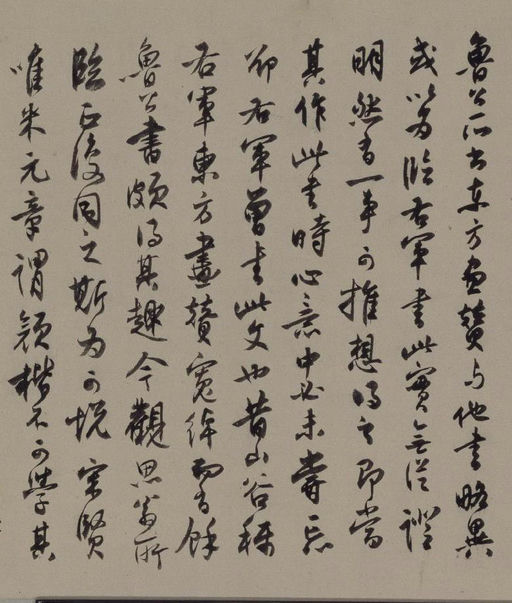 魯公所書東方畫贊与他書略異
或以為臨右軍書此實無從證
明然有一事可推想得之即當
其作此書時心意中必未嘗忘
却右軍曾書此文也昔山谷稱
右軍東方畫贊寬綽而有餘
魯公書頗得其趣今觀思翁所
臨正復同之斯為可悅宋賢
唯米元章謂顏楷不可學其